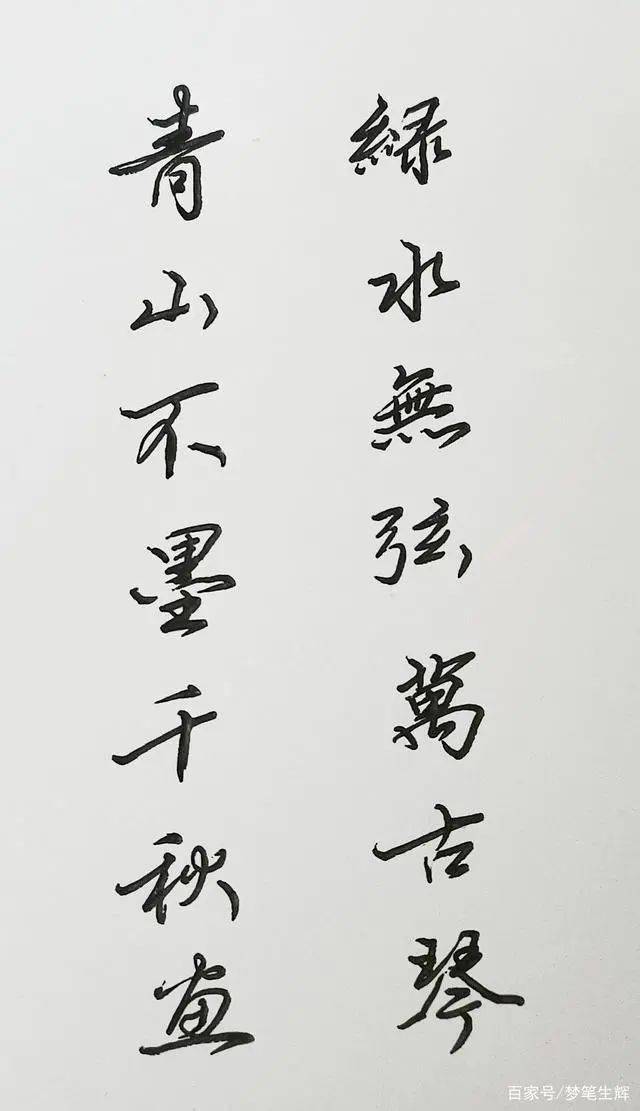 緑水無弦萬古琴
青山不墨千秋畫
百家号/梦笔生辉